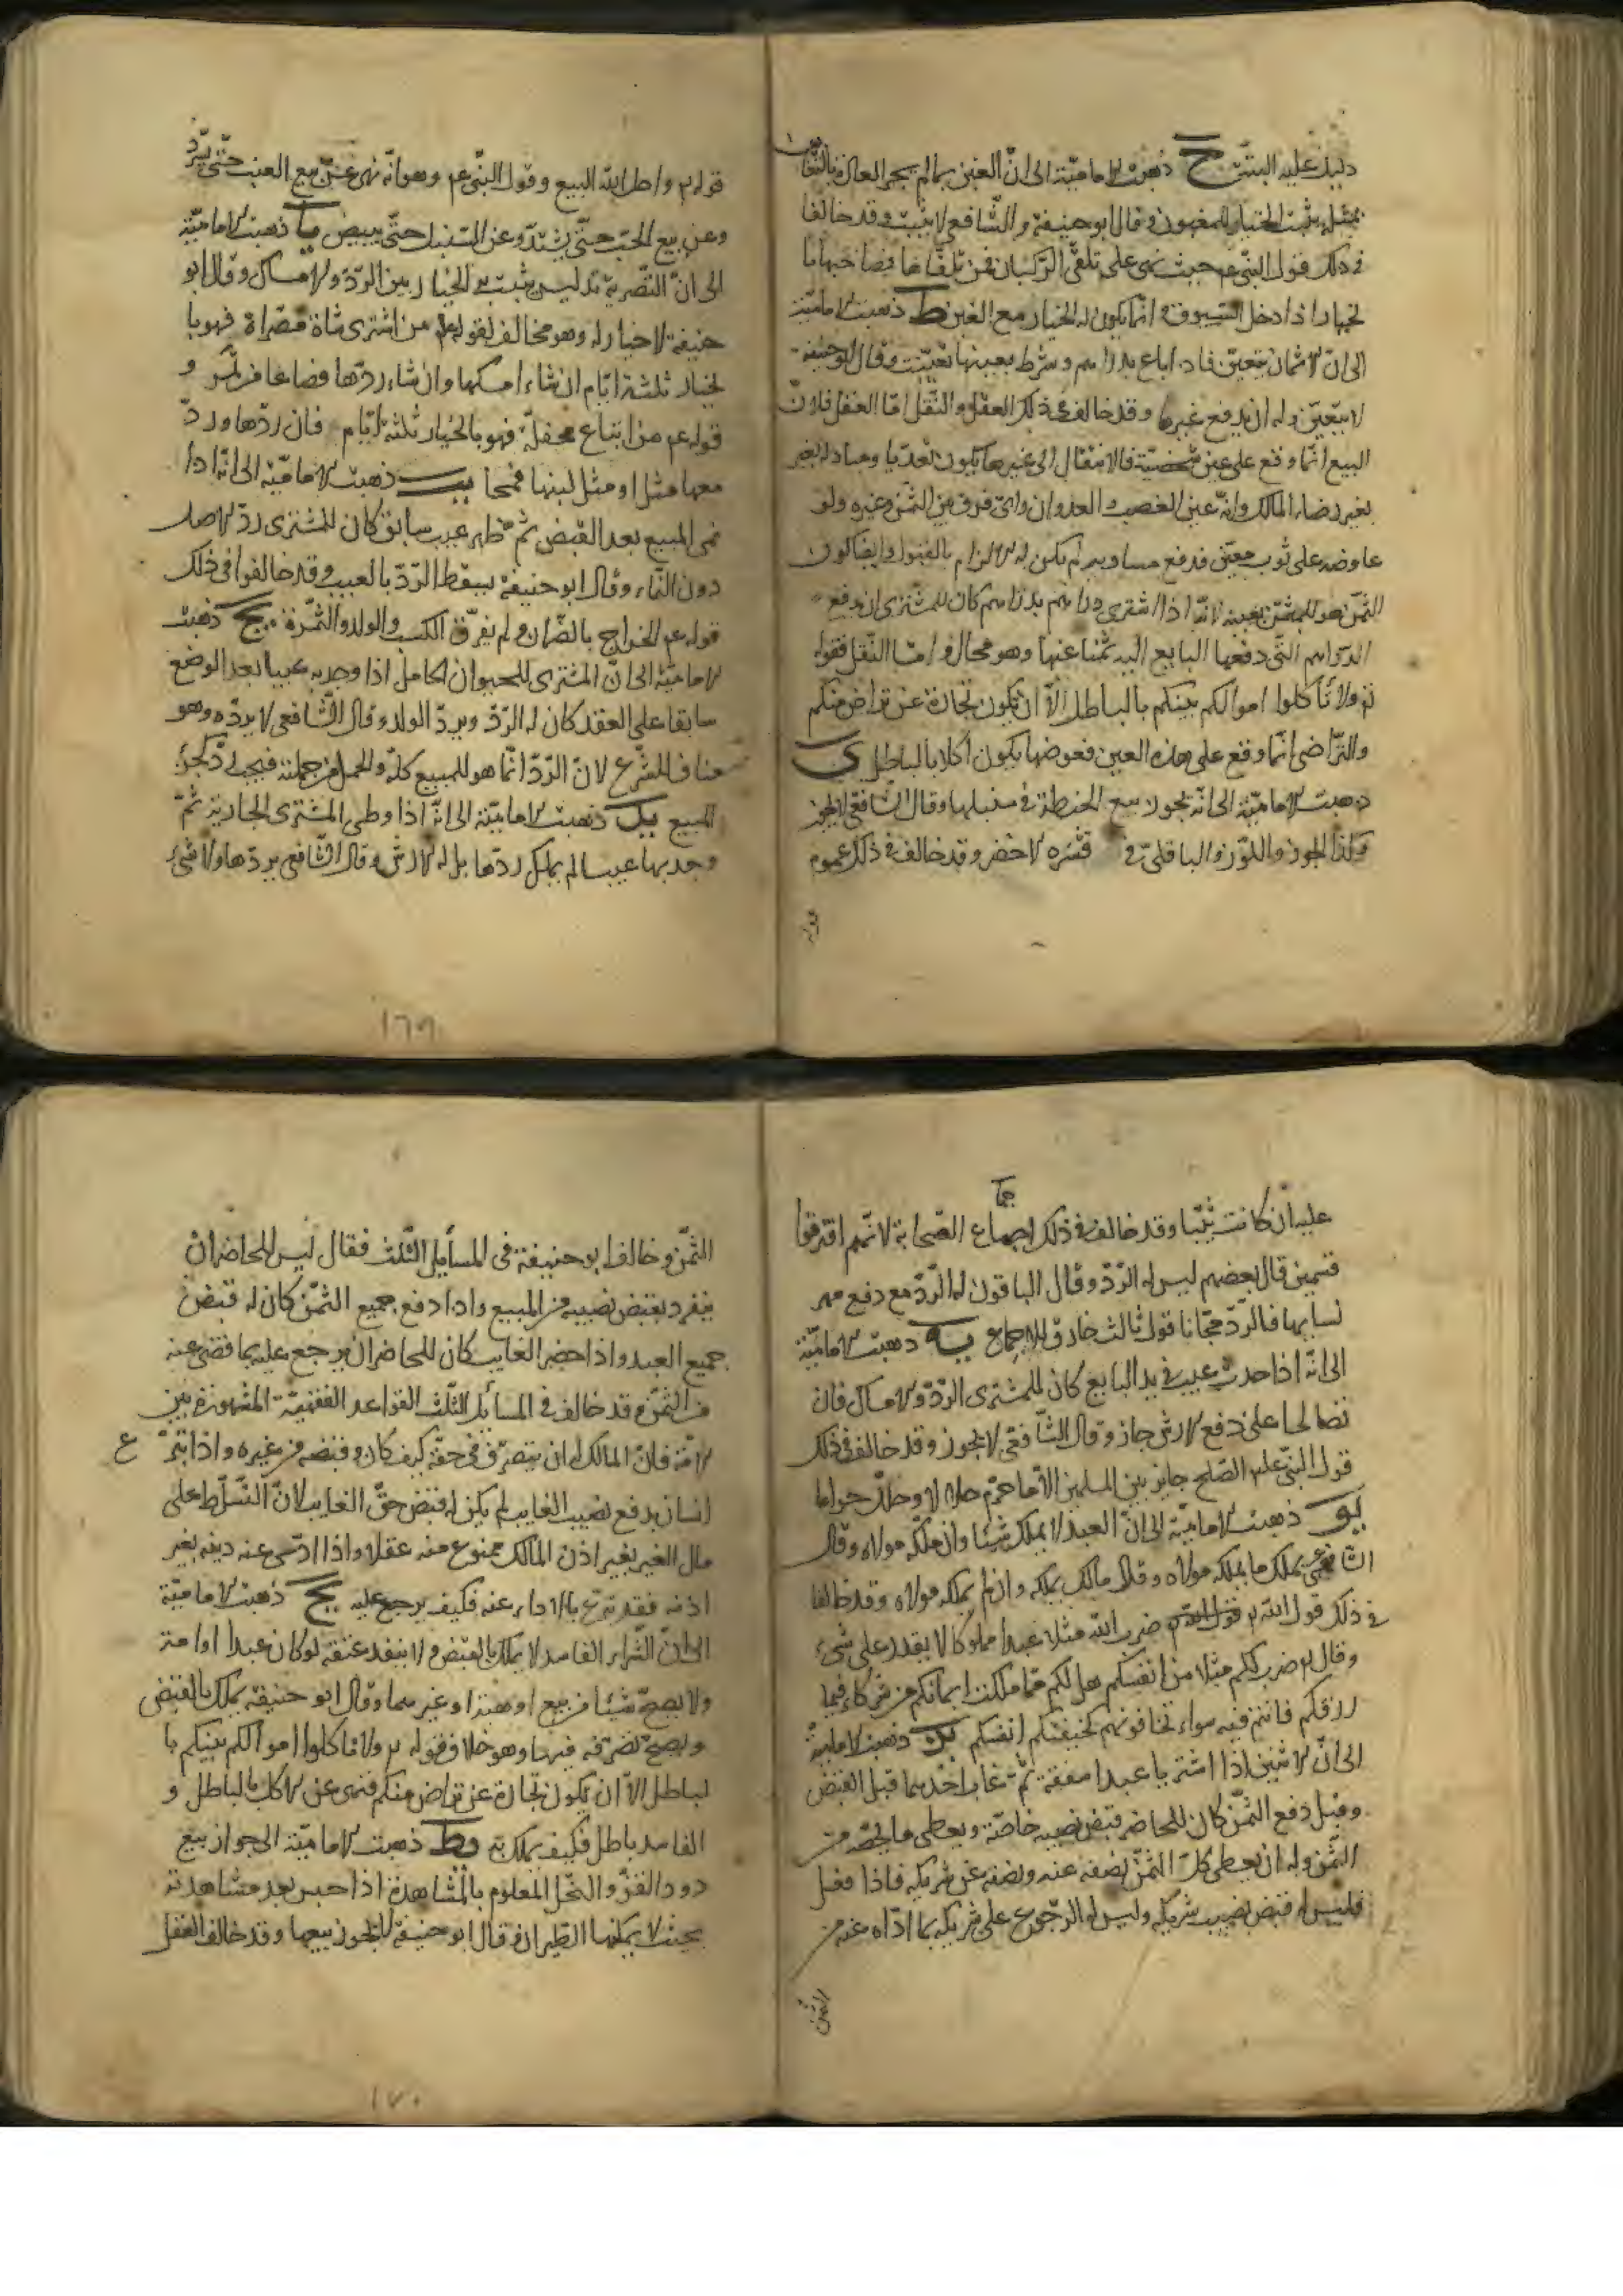 دليل عليه البتة ح ذهبت الامامية الى ان الغبن بما لم يجر العادة بالتغابن
بمثله يثبت الخيار للمغبون وقال ابو حنيفة والشافعي لا يثبت وقد خالفا
في ذلك قول النبي عم حيث نهى على تلقى الركبان فمن تلقاها فصاحبها با
لخيار اذا دخل السوق وانما يكون له الخيار مع الغبن ط ذهبت الامامية
الى ان الاثمان يتعين فاذا باع بدراهم وشرط بعينها تعينت وقال ابو حنيفة
لا يتعين وله ان يدفع غيرها وقد خالف في ذلك العقل والنقل اما العقل فلان
البيع انما وقع على عين شخصية فالانتقال الى غيرها يكون تعديا ومبادلة بغير
بغير رضاء المالك وانه عين الغصب والعدوان واى فرق بين الثمن وغيره ولو
عاوضه على ثوب معين فدفع مساويه لم يكن له الالزام بالقبول وايضا كون
الثمن هو المثمن بعينه لانه اذا اشترى دراهم بدراهم كان للمشترى ان يدفع
الدراهم التى دفعها البايع اليه ثمنا عنها وهو محال واما النقل فقوله
تع ولا تأكلوا اموالكم بينكم بالباطل الا ان تكون تجارة عن تراض منكم
والتراضى انما وقع على هذه العين فعوضها يكون اكلا بالباطل ى
ذهبت الامامية الى انه يجوز بيع الحنطة في سنبلها وقال الشافعي لا يجوز
وكذا الجوز واللوز والباقلى في قشره الاخضر وقد خالف في ذلك عموم
قوله
قوله تع واحل الله البيع وقول النبي عم وهو انه نهى عن بيع العنب حتى يسود
وعن بيع الحب حتى يشتد وعن السنبل حتى يبيض يا ذهبت الامامية
الى ان التصرية تدليس يثبت به الخيار بين الرد والامساك وقال ابو
حنيفة لا خيار له وهو مخالف لقوله عم من اشترى شاة مصراة فهو با
لخيار ثلثة ايام ان شاء امسكها وان شاء ردها وصاعا من تمر و
قوله عم من ابتاع محفلة فهو بالخيار ثلثة ايام فان ردها ورد
معها مثل او مثل لبنها قمحا يب ذهبت الامامية الى انه اذا
نمى المبيع بعد القبض ثم ظهر عيب سابق كان للمشترى رد الاصل
دون النماء وقال ابو حنيفة يسقط الرد بالعيب وقد خالفوا في ذلك
قوله عم الخراج بالضمان ولم يفرق الكسب والولد والثمرة يج ذهبت
الامامية الى ان المشترى للحيوان الحامل اذا وجد به عيبا بعد الوضع
سابقا على العقد كان له الرد ويرد الولد وقال الشافعي لا يرده وهو
مناف للشرع لان الرد انما هو للمبيع كله والحمل من جملته فيجب رد كجزء
المبيع يد ذهبت الامامية الى انه اذا وطى المشترى الجارية ثم
وجد بها عيبا لم يملك ردها بل له الارش وقال الشافعي يردها ولا شئ
١٦٩
عليه ان كانت ثيبا وقد خالف في ذلك اجماع الصحابة لانهم افترقوا
قسمين قال بعضهم ليس له الرد وقال الباقون له الرد مع دفع مهر
نسايها فالرد مجانا قول ثالث خارق للاجماع يه ذهبت الامامية
الى انه اذا حدث عيب في يد البايع كان للمشترى الرد والامساك فان
تصالحا على دفع الارش جاز وقال الشافعي لا يجوز وقد خالف في ذلك
قول النبي عليه الصلح جايز بين المسلمين الا ما حرم حلالا او حلل حراما
يو ذهبت الامامية الى ان العبد لا يملك شيئا وان ملكه مولاه وقال
الشافعي يملك ما يملكه مولاه وقال مالك يملك وان لم يملكه مولاه وقد خالفا
في ذلك قول الله تع ضرب الله مثلا عبدا مملوكا لا يقدر على شئ
وقال تع ضرب لكم مثلا من انفسكم هل لكم مما ملكت ايمانكم من شركاء فيما
رزقكم فانتم فيه سواء تخافونهم كخيفتكم انفسكم يز ذهبت الامامية
الى ان الاثنين اذا اشتريا عبدا صفقة ثم غاب احدهما قبل القبض
وقبل دفع الثمن كان للحاضر قبض نصيبه خاصة ويعطى ما يخصه من
الثمن وله ان يعطى كل الثمن نصفه عنه ونصفه عن شريكه فاذا فعل
فليس له قبض نصيب شريكه وليس له الرجوع على شريكه بما اداه عنه من
الثمن
الثمن وخالف ابو حنيفة في المسأيل الثلث فقال ليس للحاضر ان
ينفرد بقبض نصيبه من المبيع واذا دفع جميع الثمن كان له قبض
جميع العبد واذا حضر الغايب كان للحاضر ان يرجع عليه بما قضى عنه
من الثمن وقد خالف في المسأيل الثلث القواعد الفقهية المشهورة بين
الامة فان المالك له ان يتصرف في حقه كيف كان وقبضه من غيره واذا تبرع
انسان بدفع نصيب الغايب لم يكن له قبض حق الغايب لان التسلط على
مال الغير بغير اذن المالك ممنوع منه عقلا واذا ادى عنه دينه بغير
اذنه فقد تبرع بالاداء عنه فكيف يرجع عليه يح ذهبت الامامية
الى ان الشراء الفاسد لا يملك بالقبض ولا ينفد عتقه لو كان عبدا او امة
ولا يصح شيئا من بيع او هبة او غيرهما وقال ابو حنيفة يملك بالقبض
ويصح تصرفه فيها وهو خلاف قوله تع ولا تأكلوا اموالكم بينكم با
لباطل الا ان تكون تجارة عن تراض منكم فنهى عن الاكل بالباطل و
الفاسد باطل فكيف يملك به يط ذهبت الامامية الى جواز بيع
دود القز والنحل المعلوم بالمشاهدة اذا حبس بعد مشاهدته
بحيث لا يمكنها الطيران وقال ابو حنيفة لا يجوز بيعها وقد خالف العقل
١٧٠